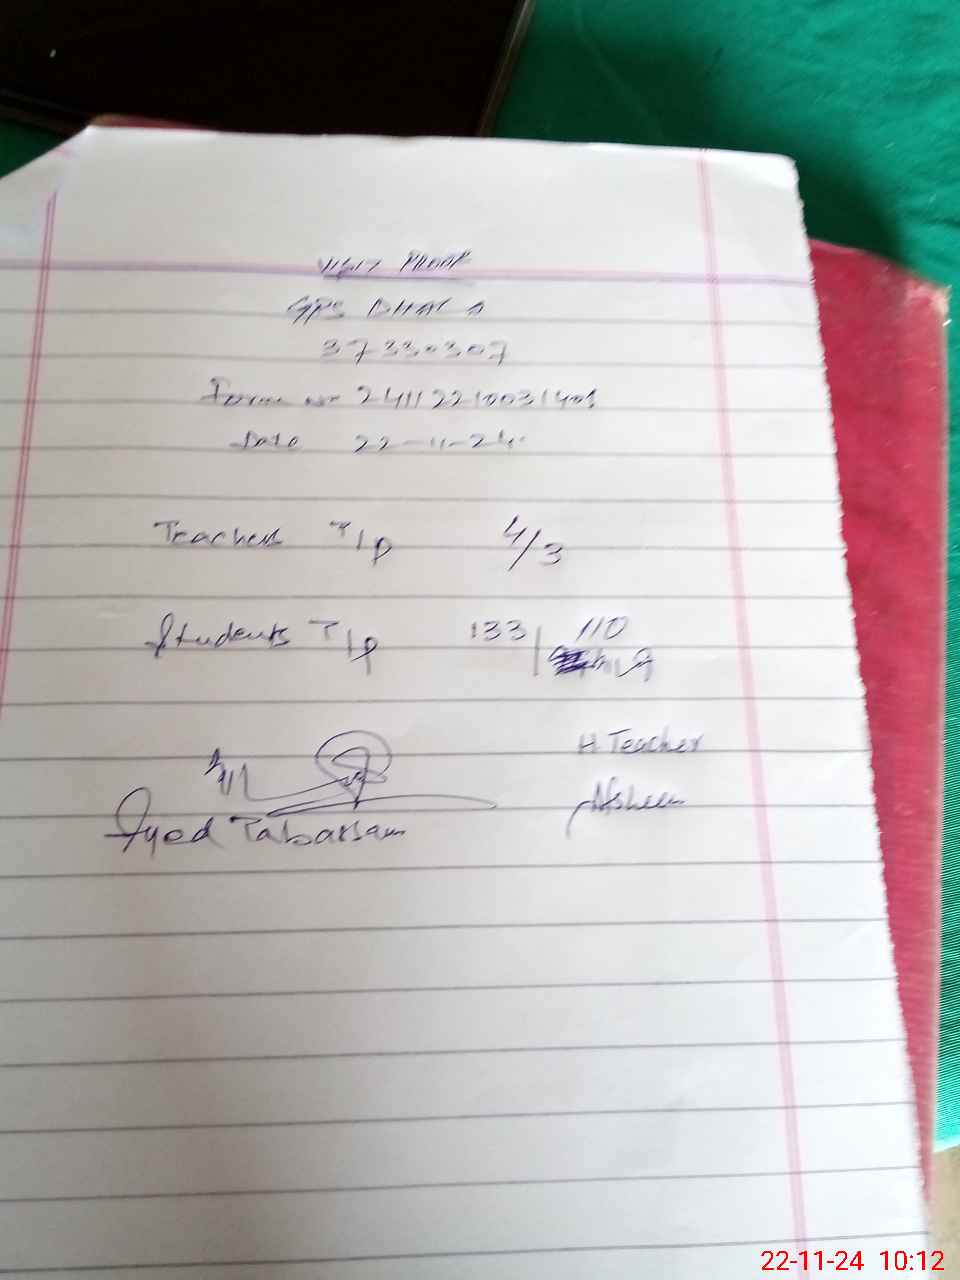 VISIT PROOF
GPS DHOK A
37330307
Form no 24112210031401
Date 22-11-24
Teachers T/p 4/3
Students T/p 133/110
H. Teacher
Afsheen
Syed Tabassam
22-11-24 10:12